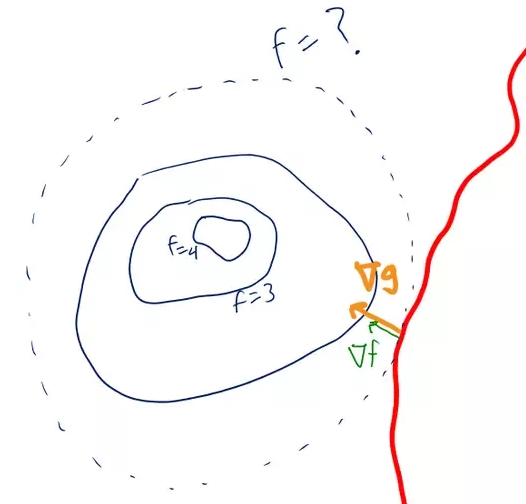 f=?
f=4
f=3
∇g
∇f